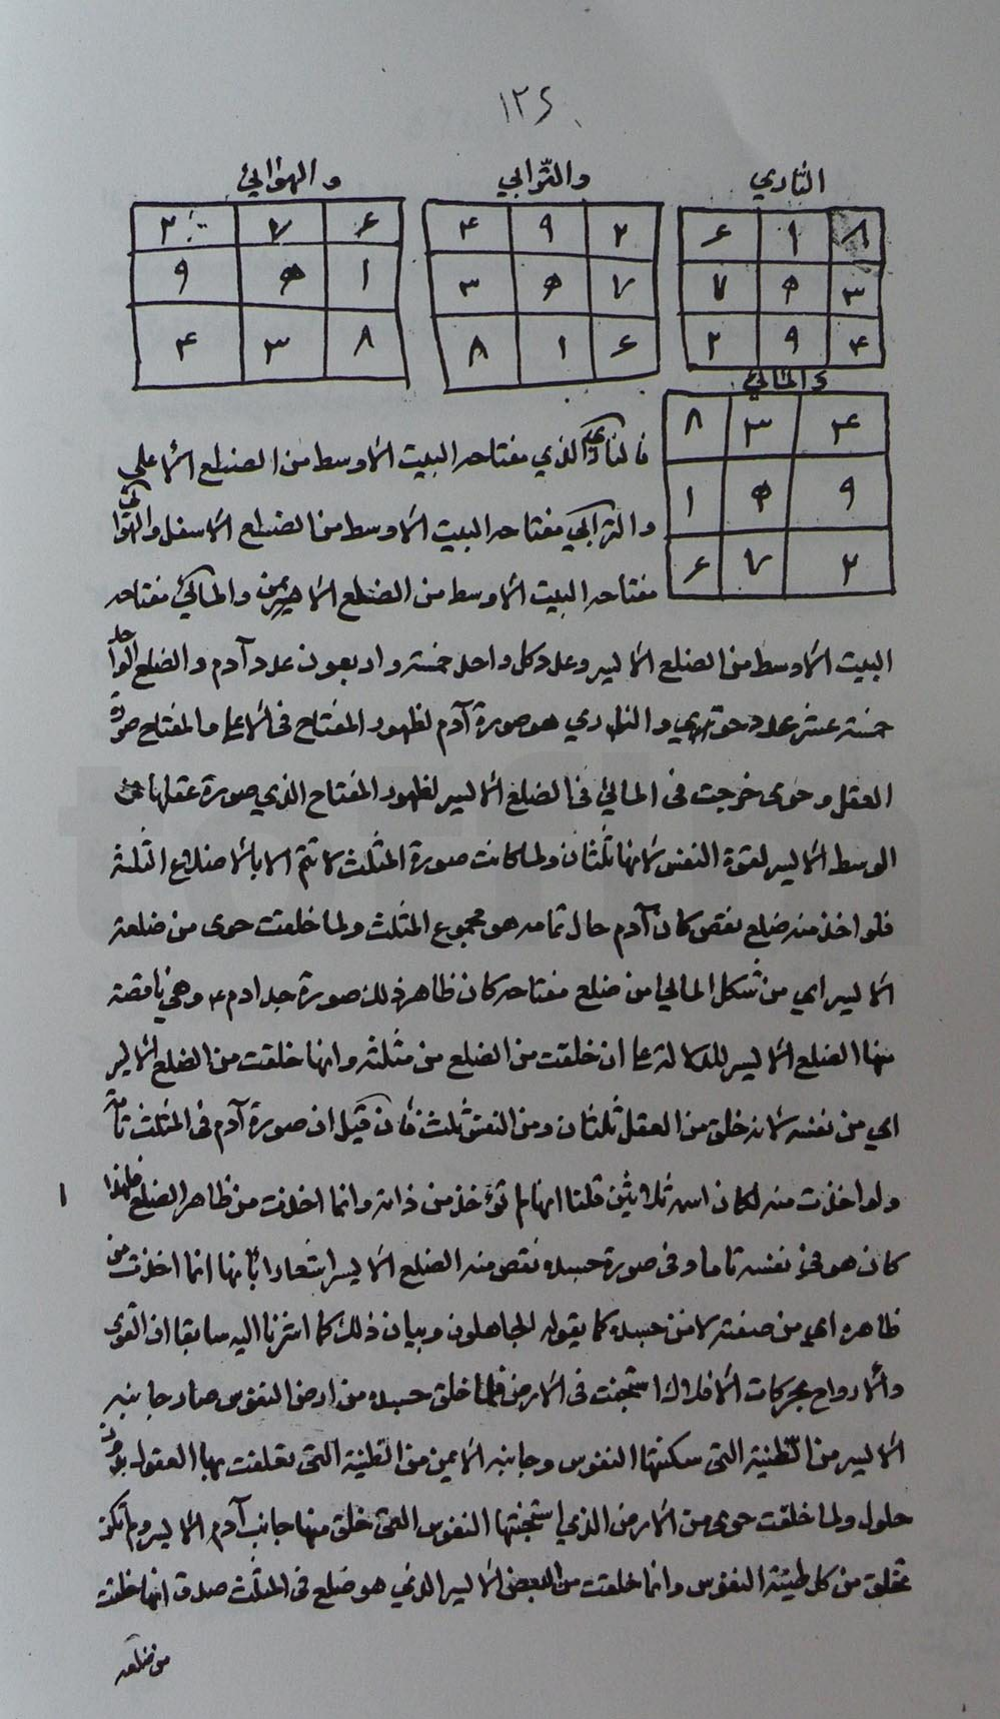 ١٢٤
الناري والترابي والهوائي
٨ ١ ٦ ٢ ٩ ۴ ٦ ٧ ٢
٣ ٥ ٧ ٧ ٥ ٣ ١ ٥ ٩
۴ ٩ ٢ ٦ ١ ٨ ٨ ٣ ۴
والمائي
۴ ٣ ٨
٩ ٥ ١
٢ ٧ ٦
فالناري الذي مفتاحه البيت الاوسط من الضلع الاعلى
والترابي مفتاحه البيت الاوسط من الضلع الاسفل والهوائي
مفتاحه البيت الاوسط من الضلع الايمن والمائي مفتاحه
البيت الاوسط من الضلع الايسر وعدد كل واحد خمسة واربعون عدد آدم والضلع الواحد
خمسة عشر عدد حوى والناري هو صورة آدم لظهور المفتاح في الاعلى والمفتاح صورة
العقل وحوى خرجت في المائي في الضلع الايسر لظهور المفتاح الذي صورة عقلها في
الوسط الايسر لقوة النفس لانها ثلثان ولما كانت صورة المثلث لا تتم الا بالاضلاع الثلثة
فلو اخذ منه ضلع نقص كان آدم حال تمامه هو مجموع المثلث ولما خلقت حوى من ضلعه
الايسر اي من شكل المائي من ضلع مفتاحه كان ظاهر ذلك صورة جسد ادم ع وهي ناقصة
منها الضلع الايسر للدلالة على ان خلقت من الضلع من مثلثه وانها خلقت من الضلع الايسر
اي من نفسه لانه خلق من العقل ثلثان ومن النفس ثلث فان قيل ان صورة آدم في المثلث تامة
ولو اخذت منه لكان اسه ثلاثين قلنا انها لم تؤخذ من ذاته وانما اخذت من ظاهر الضلع فلهذا
كان هو في نفسه تاما وفي صورة جسده نقص منه الضلع الايسر اشعارا بانها انما اخذت من
ظاهره اي من صفته لا من جسده كما يقوله الجاهلون وبيان ذلك كما اشرنا اليه سابقا ان القوى
والارواح بحركات الافلاك استجنت في الارض فلما خلق جسده من ارض النفوس صار جانبه
الايسر من الطينة التي سكنتها النفوس وجانبه الايمن من الطينة التي تعلقت بها العقول بدون
حلول ولما خلقت حوى من الارض الذي استجنتها النفوس التي خلق منها جانب آدم الايسر ولم تكن
تخلق من كل طينة النفوس وانما خلقت من البعض الايسر الذي هو ضلع في المثلث صدق انها خلقت
من ضلعه